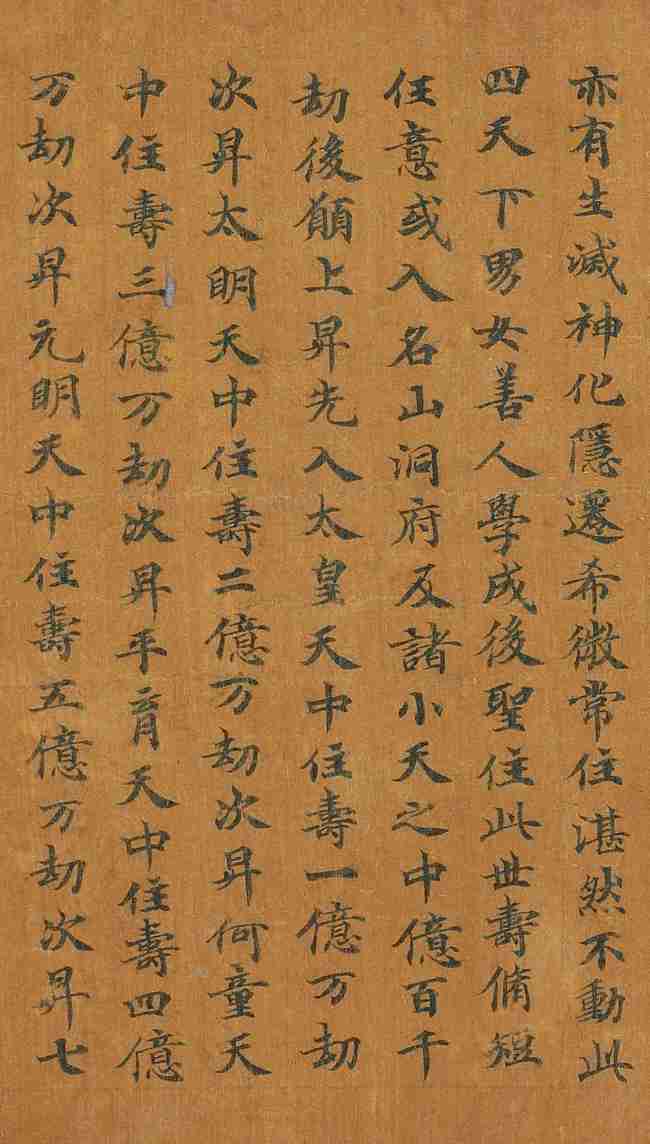 亦有生滅神化隱遷希微常住湛然不動此
四天下男女善人學成後聖住此世壽脩短
任意或入名山洞府及諸小天之中億百千
劫後願上昇先入太皇天中住壽一億万劫
次昇太明天中住壽二億万劫次昇何童天
中住壽三億万劫次昇平育天中住壽四億
万劫次昇元明天中住壽五億万劫次昇七